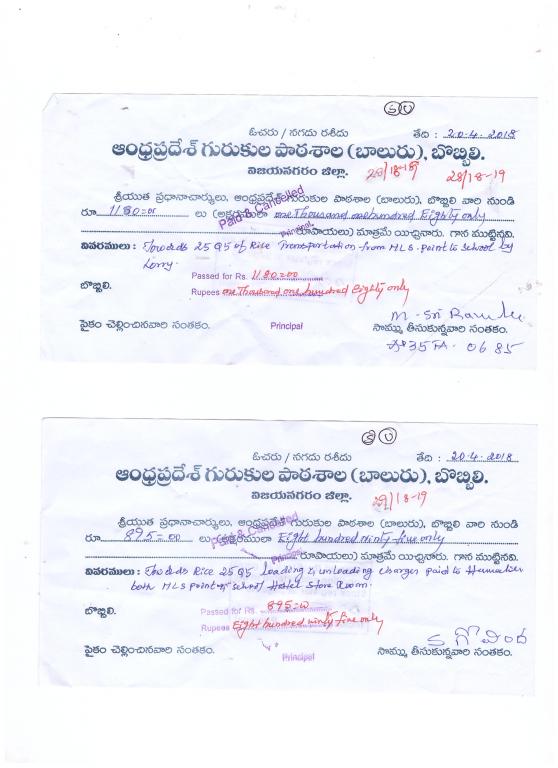 S V
ఓచరు / నగదు రశీదు తేది : 20-4-2018
ఆంధ్రప్రదేశ్ గురుకుల పాఠశాల (బాలురు), బొబ్బిలి.
విజయనగరం జిల్లా. 28/18-19
శ్రీయుత ప్రధానాచార్యులు, ఆంధ్రప్రదేశ్ గురుకుల పాఠశాల (బాలురు), బొబ్బిలి వారి నుండి
రూ 1180=00 లు (అక్షరములా one Thousand one hundred Eighty only
Paid & Cancelled
Principal
రూపాయలు) మాత్రమే యిచ్చినారు. గాన ముట్టినవి.
వివరములు : Towards 25 Qs of Rice Transportation from MLS. point to School by
Lorry.
Passed for Rs. 1180=00
బొబ్బిలి.
Rupees one Thousand one hundred Eighty only
M. Sri Ramulu
పైకం చెల్లించినవారి సంతకం. Principal సొమ్ము తీసుకున్నవారి సంతకం.
AP35TA. 0685
S V
ఓచరు / నగదు రశీదు తేది : 20-4-2018
ఆంధ్రప్రదేశ్ గురుకుల పాఠశాల (బాలురు), బొబ్బిలి.
విజయనగరం జిల్లా. 29/18-19
శ్రీయుత ప్రధానాచార్యులు, ఆంధ్రప్రదేశ్ గురుకుల పాఠశాల (బాలురు), బొబ్బిలి వారి నుండి
రూ 895=00 లు (అక్షరములా Eight hundred ninty five only
Paid & Cancelled
Principal
రూపాయలు) మాత్రమే యిచ్చినారు. గాన ముట్టినవి.
వివరములు : Towards Rice 25 Qs Loading & unloading charges paid to
both MLS point & School Hostel Store Room.
బొబ్బిలి. Passed for Rs. 895=00
Rupees Eight hundred ninty five only
గోవింద
పైకం చెల్లించినవారి సంతకం. Principal సొమ్ము తీసుకున్నవారి సంతకం.